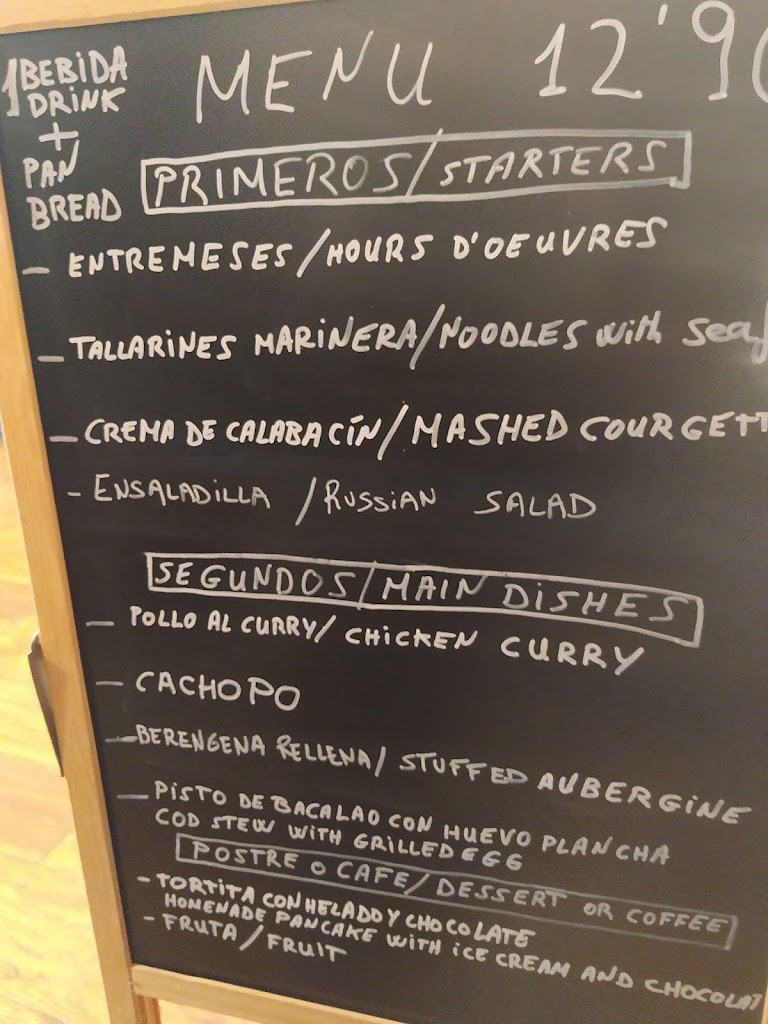 1 BEBIDA
DRINK
+
PAN
BREAD
MENU 12'90
PRIMEROS/STARTERS
- ENTREMESES/HOURS D'OEUVRES
- TALLARINES MARINERA/NOODLES with Seaf
- CREMA DE CALABACÍN/MASHED COURGETT
- ENSALADILLA /RUSSIAN SALAD
SEGUNDOS/MAIN DISHES
- POLLO AL CURRY/ CHICKEN CURRY
- CACHOPO
- BERENGENA RELLENA/ STUFFED AUBERGINE
- PISTO DE BACALAO CON HUEVO PLANCHA
COD STEW WITH GRILLED EGG
POSTRE O CAFE/DESSERT OR COFFEE
- TORTITA CON HELADO Y CHOCOLATE
HOMENADE PANCAKE WITH iCE CREAM AND CHOCOLAT
- FRUTA/FRUIT